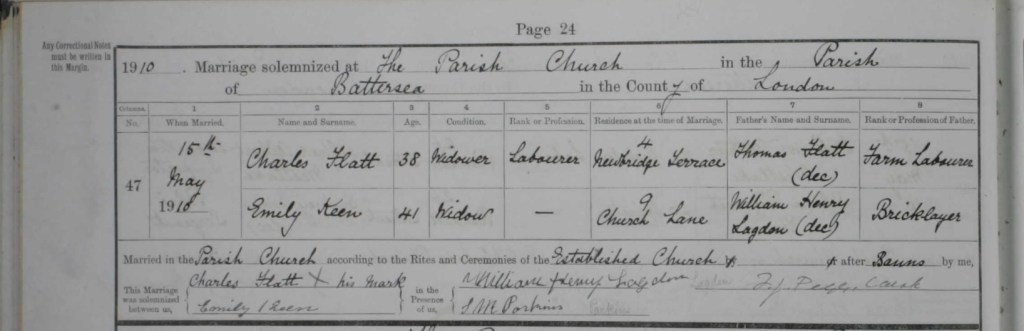 Page 24
Any Correctional Notes
must be written in
this Margin.
1910. Marriage solemnized at The Parish Church in the Parish
of Battersea in the County of London
Columns. 1 2 3 4 5 6 7 8
No. When Married. Name and Surname. Age. Condition. Rank or Profession. Residence at the time of Marriage. Father's Name and Surname. Rank or Profession of Father.
47 15th May 1910 Charles Flatt 38 Widower Labourer 4 Newbridge Terrace Thomas Flatt (dec) Farm Labourer
Emily Keen 41 Widow — 9 Church Lane William Henry Lagdon (dec) Bricklayer
Married in the Parish Church according to the Rites and Ceremonies of the Established Church after Banns by me,
This Marriage
was solemnized
between us,
Charles Flatt X his mark
Emily Keen
in the
Presence
of us,
William Henry Lagdon